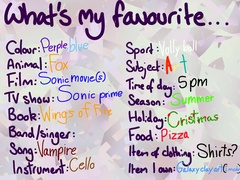 What's my favourite...
Colour: Purple blue
Animal: Fox
Film: Sonic movie(s)
TV show: Sonic prime
Book: Wings of Fire
Band/singer:
Song: Vampire
Instrument: Cello
Sport: Volly ball
Subject: Art
Time of day: 5pm
Season: Summer
Holiday: Cristmas
Food: Pizza
Item of clothing: Shirts?
Item I own: Galaxy clay art